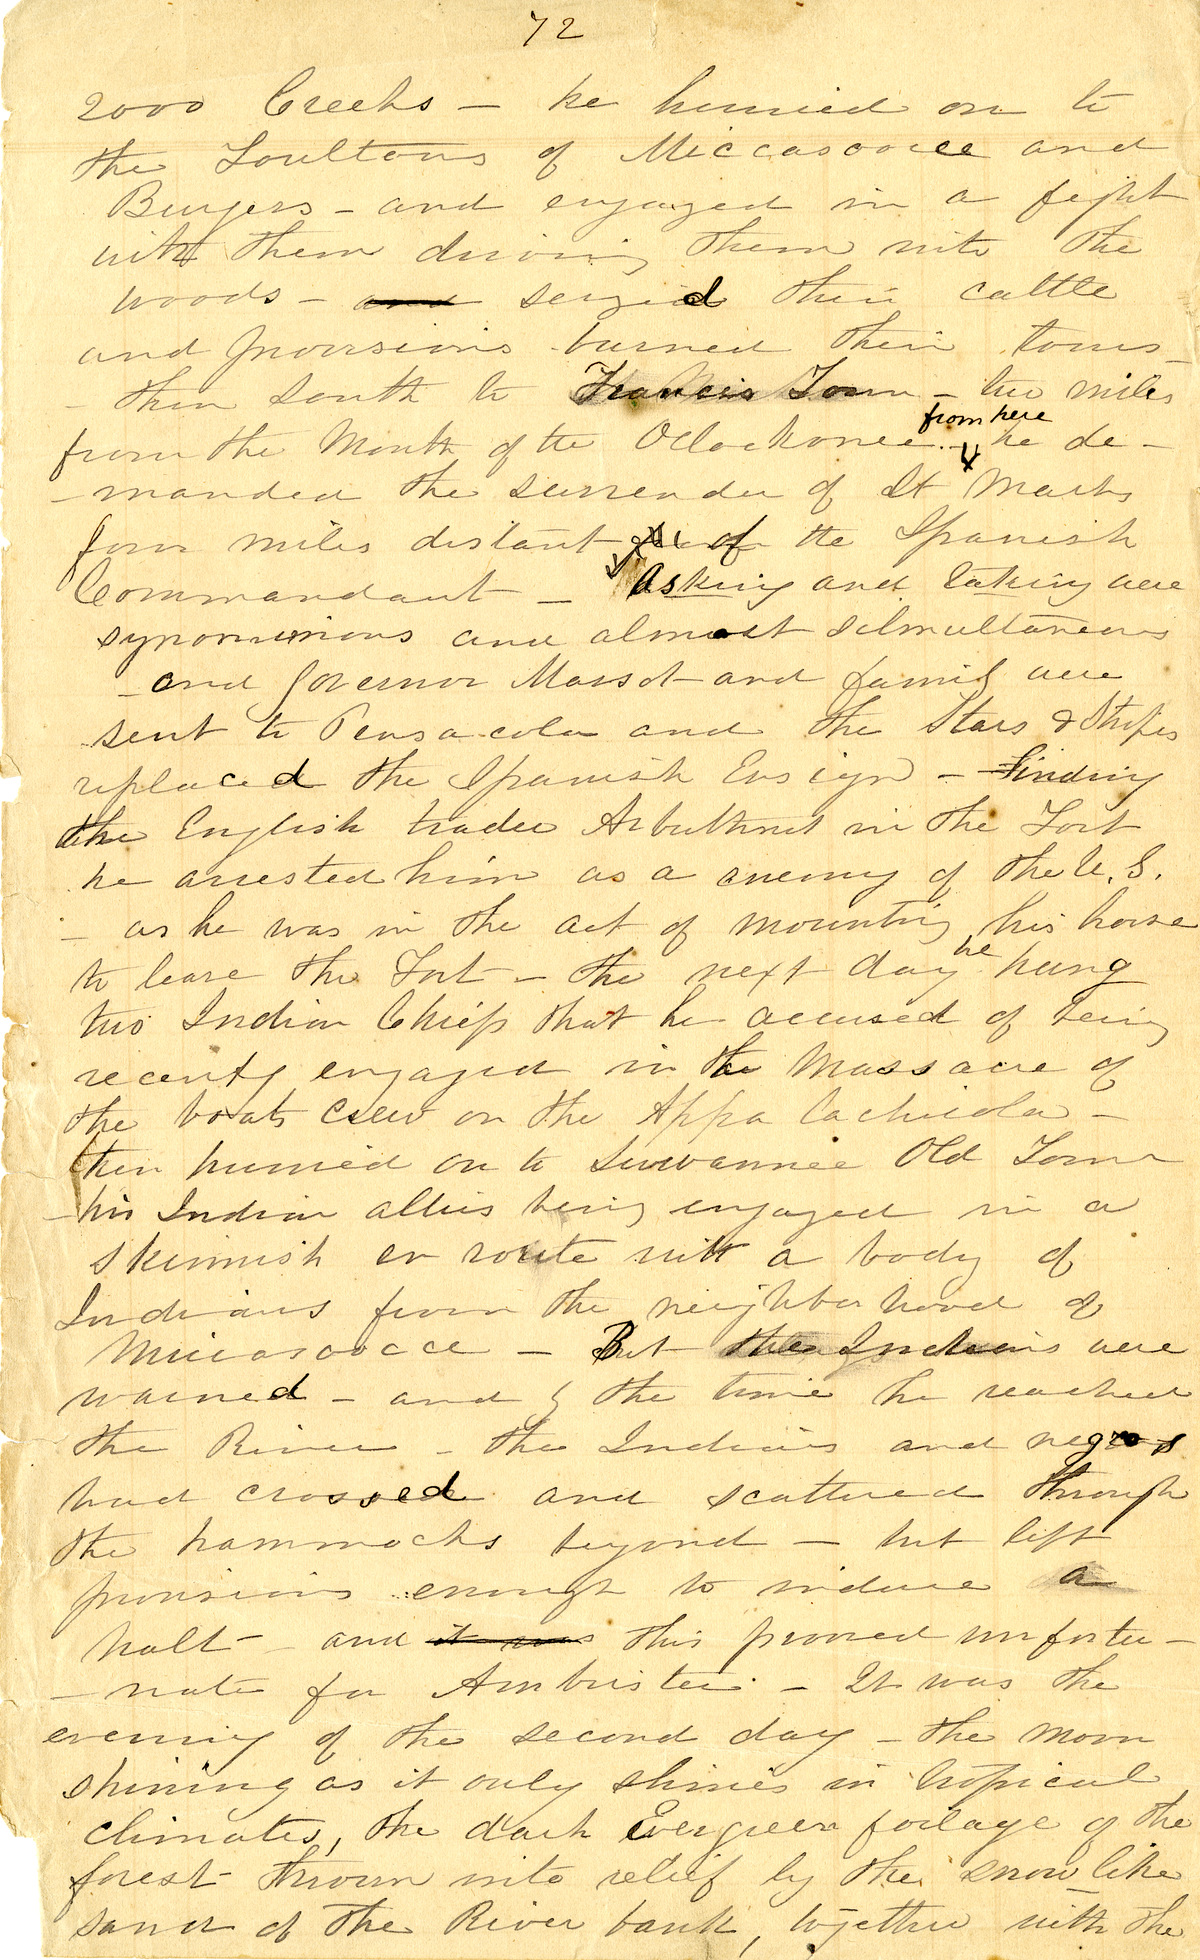 72
2000 Creeks – he hurried on to
the Foultons of Miccasooiee and
Burgers – and engaged in a fight
with them driving them into the
woods – and seized their cattle
and provisions burned their towns –
– then South to Francis Town – two miles
from the Mouth of the Oclockonee – from here he de –
– manded the surrender of St Marks
four miles distant of the Spanish
Commandant – Asking and taking were
synonimious and almost silmultaneous
– and Governor Massot and family were
sent to Pensacola and the Stars & Stripes
replaced the Spanish Ensign – Finding
the English trader Arbuthnut in the Fort
he arrested him as a enemy of the U. S.
– as he was in the act of mounting his horse
to leave the Fort – the next day he hung
two Indian Chiefs that he accused of being
recently engaged in the Massacre of
the boats crew on the Appalachicola –
then hurried on to Suwannee Old Town
– his Indian allies being engaged in a
skirmish en route with a body of
Indians from the neighborhood of
Miccasoocce – But the Indians were
warned – and by the time he reached
the River – the Indians and negros
had crossed and scattered through
the hammocks beyond – but left
provisions enough to induce a
halt – and it was this proved unfortu –
– nate for Ambrister – It was the
evening of the second day – the moon
shining as it only shines in tropical
climates, the dark Evergreen foilage of the
forest thrown into relief by the snow like
sand of the River bank, together with the